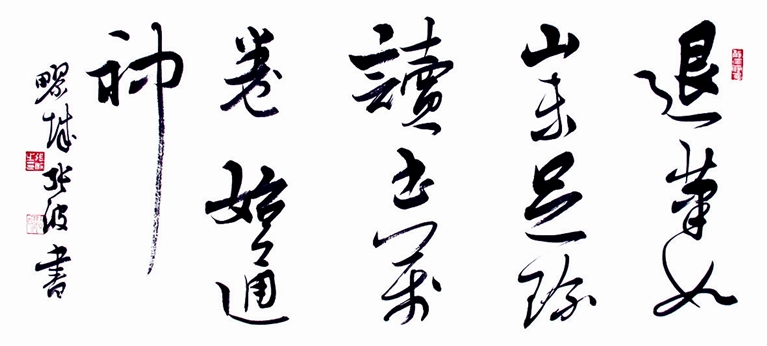 退筆如
山未足珍
讀書萬
卷始通
神
城張波書